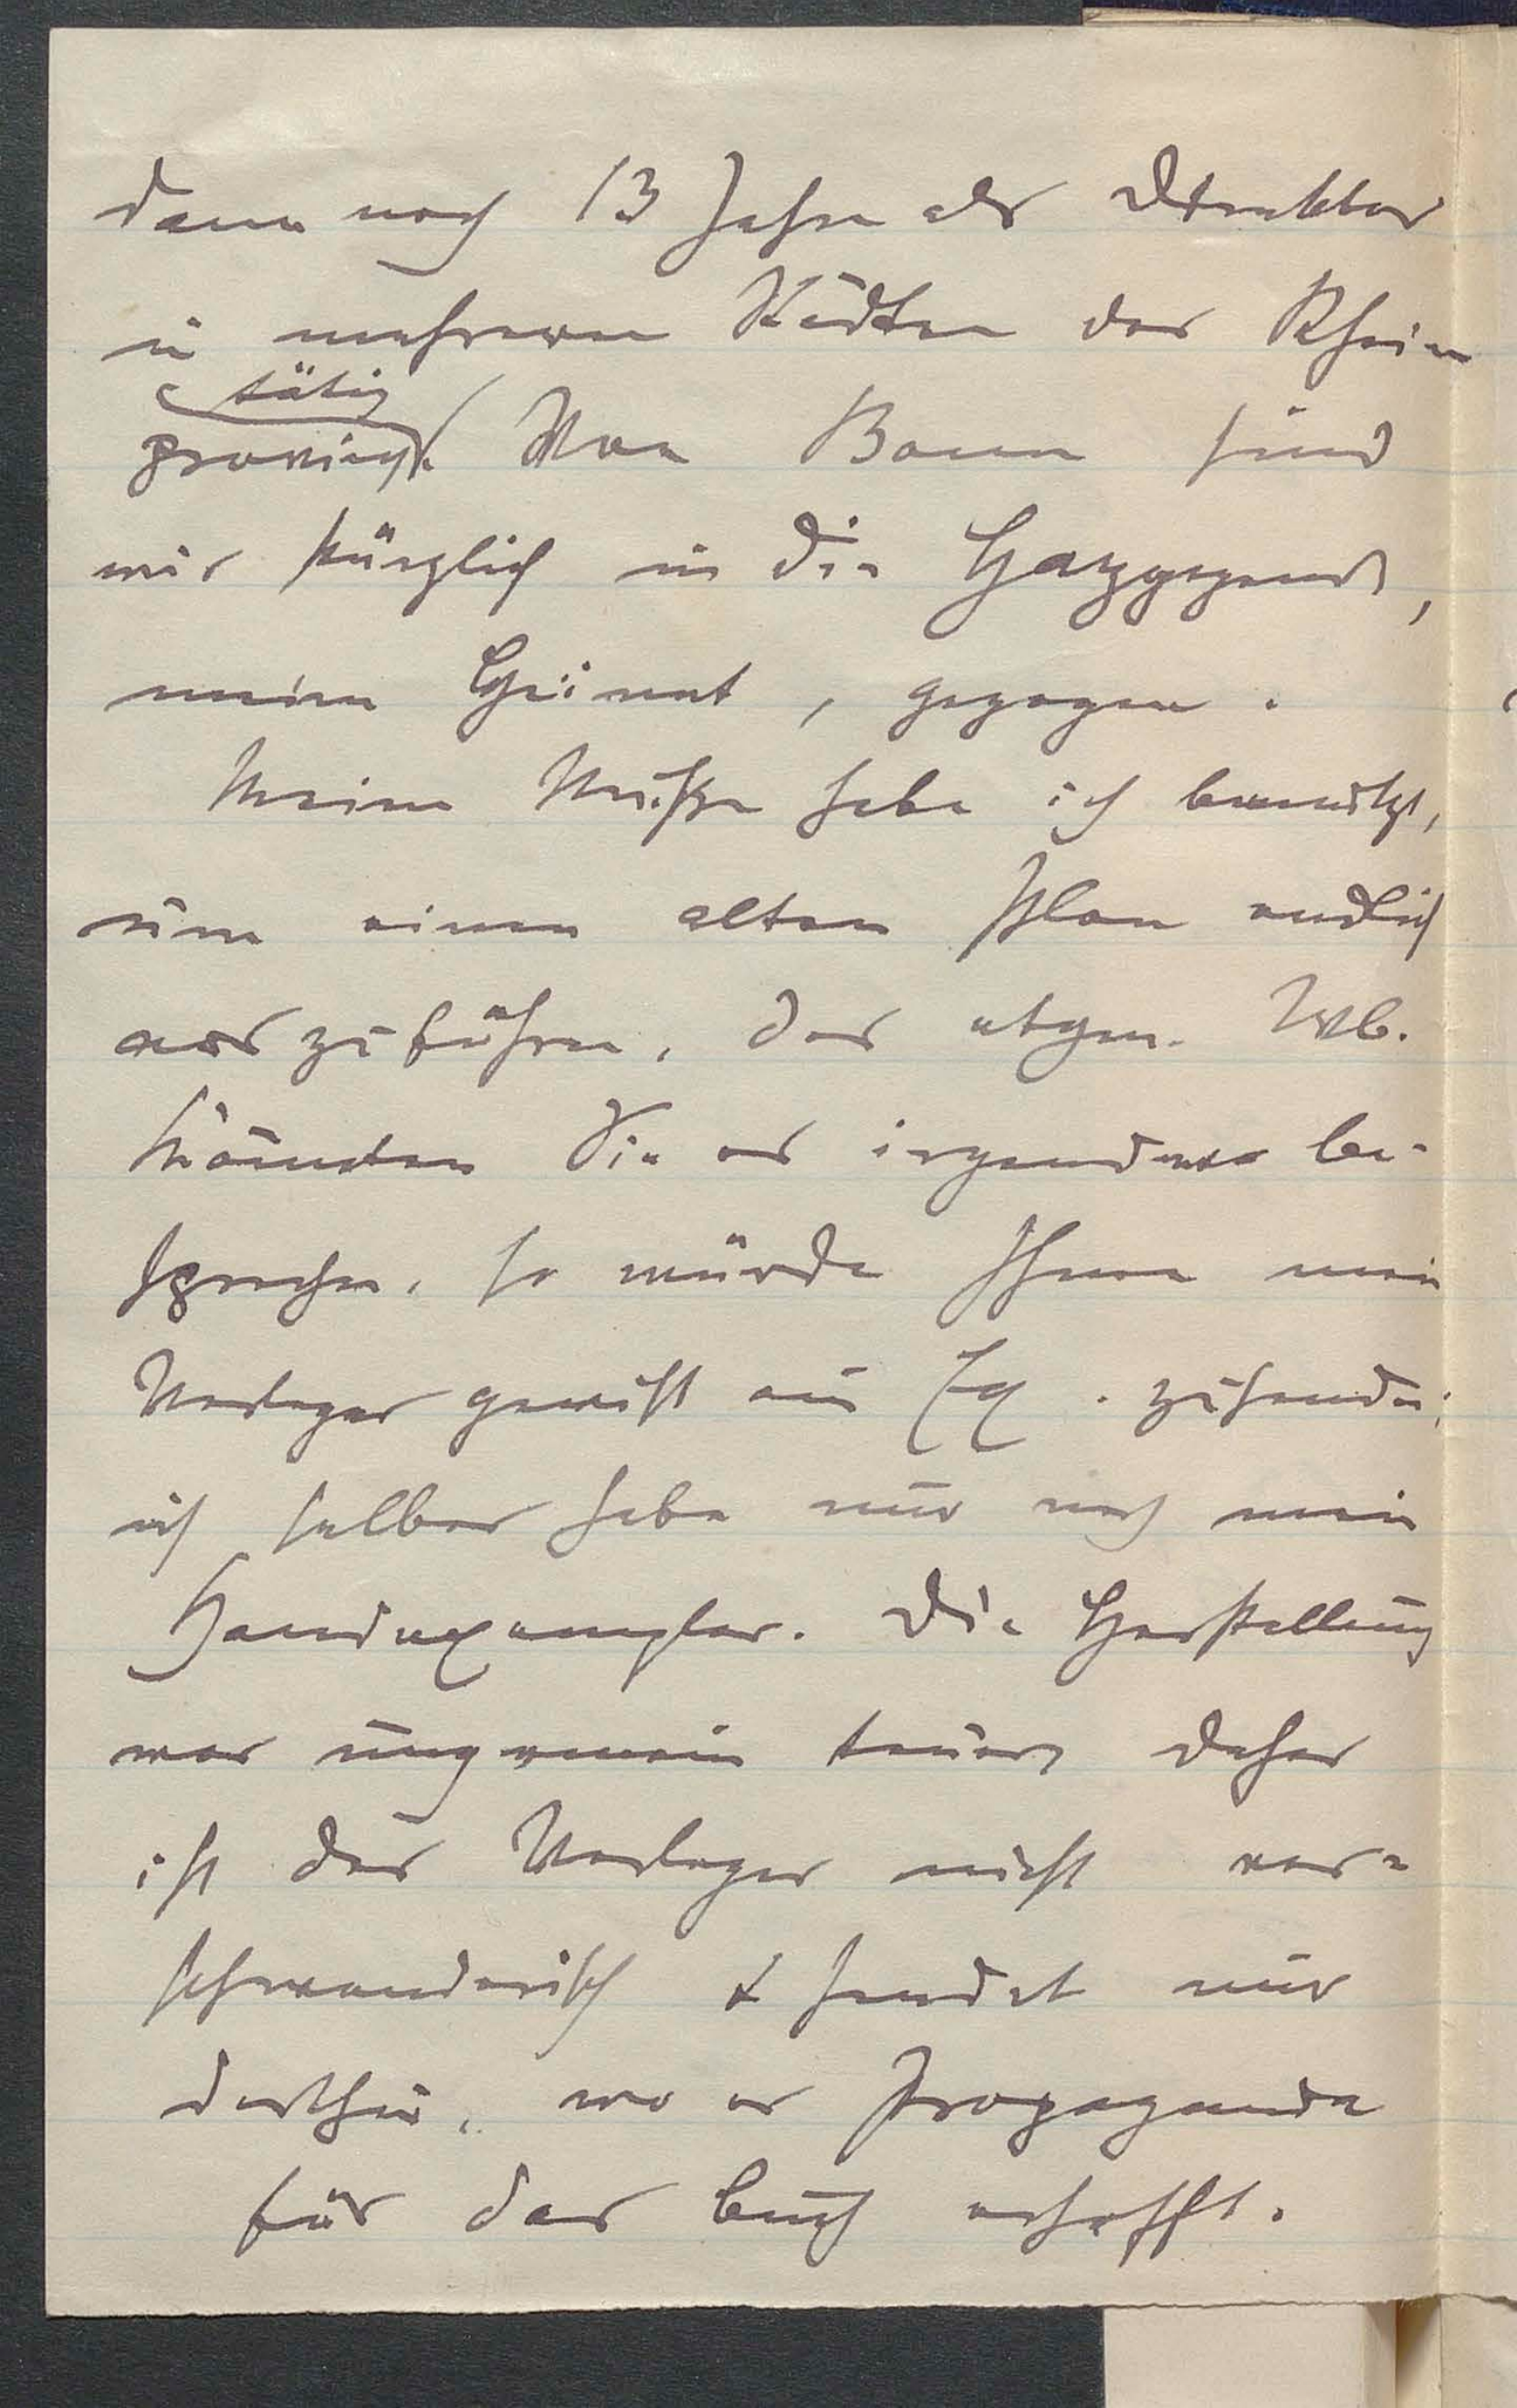 dann noch 13 Jahre als Direktor
in mehreren Städten der Rhein
tätig
provinz. Von Bonn sind
wir kürzlich in die Harzgegend,
meine Heimat, gezogen.
Meine Muße habe ich benutzt,
um einen alten Plan endlich
auszuführen, das etym. Wb.
Könnten Sie es irgendwo be-
sprechen, so würde Ihnen mein
Verleger gewißt ein Ex. zusenden;
ich selber habe nur noch mein
Handexemplar. Die Herstellung
war ungemein teuer, daher
ist der Verleger nicht ver-
schwenderisch & sendet nur
dorthin, wo er Propaganda
für das Buch erhofft.